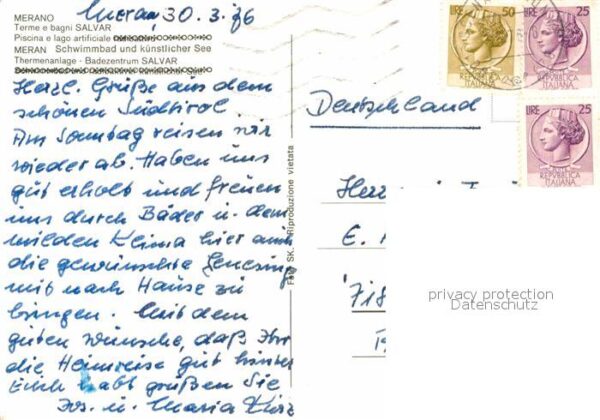 Meran, 30.3.76
MERANO
Terme e bagni SALVAR
Piscina e lago artificiale
MERAN Schwimmbad und künstlicher See
Thermenanlage - Badezentrum SALVAR
Herzl. Grüße aus dem
schönen Südtirol.
Am Sonntag reisen wir
wieder ab. Haben uns
gut erholt und freuen
uns durch Bäder u. dem
milden Klima hier auch
die gewünschte Genesung
mit nach Hause zu
bringen. Mit dem
guten Wunsche, daß Ihr
die Heimreise gut hinter
Euch habt grüßen Sie
Jos. u. Maria
Foto SK. - Riproduzione vietata
LIRE 50
REPUBBLICA
ITALIANA
LIRE 25
REPUBBLICA
ITALIANA
LIRE 25
REPUBBLICA
ITALIANA
Deutschland
Herr
E.
privacy protection
Datenschutz